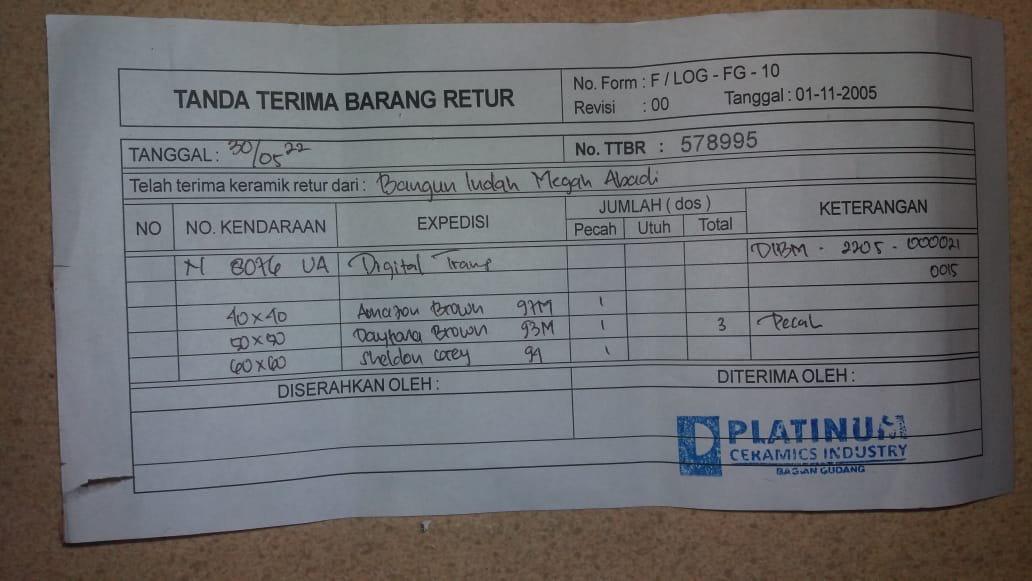 TANDA TERIMA BARANG RETUR
No. Form : F / LOG - FG - 10
Revisi : 00 Tanggal : 01-11-2005
TANGGAL : 30/05 22
No. TTBR : 578995
Telah terima keramik retur dari : Bangun Indah Megah Abadi
NO NO. KENDARAAN EXPEDISI JUMLAH ( dos ) KETERANGAN
Pecah Utuh Total
N 8076 UA Digital Trans DIBM - 2205 - 000021
0015
40x40 Amazon Brown 97M 1
50x50 Daytona Brown 93M 1 3 Pecah
60x60 Sheldon Grey 91 1
DISERAHKAN OLEH : DITERIMA OLEH :
PLATINUM
CERAMICS INDUSTRY
BAGIAN GUDANG